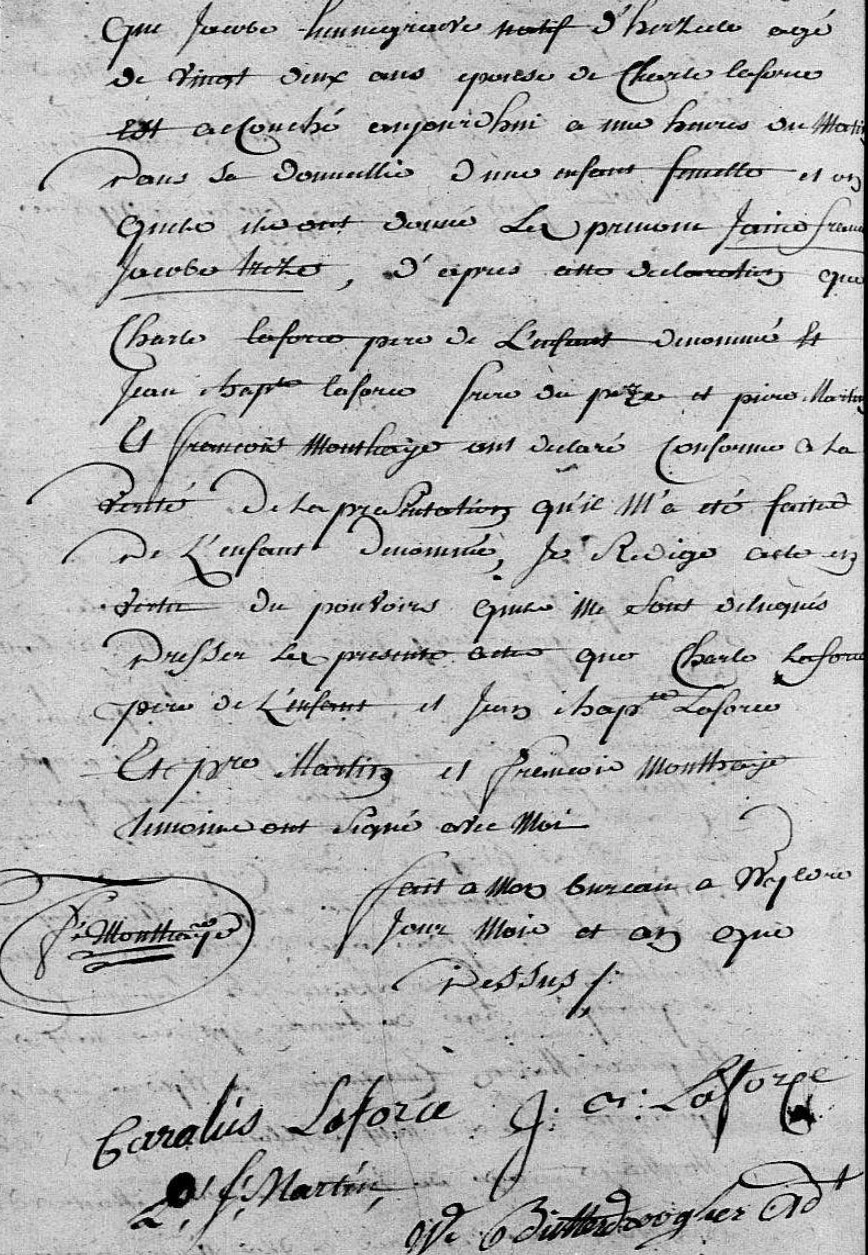 Que Jacobe hunnegrave natif d'herzele agé
de vingt deux ans epouse de Charle laforce
Est accouché aujourdhui a une heures du Matin
Dans sa Domicillie d'une enfant femelle et on
quele ont donné Les prenom
Jacobe treze, d'apres cette declaration que
Charle laforce pere de L'enfant denommé Et
Jean Bapte laforce frere du pere et piere Martin
Et francois Monthaye ont declaré Conforme a La
verité De La presentation qu'il M'a eté faite
De L'enfant denommé, Je Redige acte en
vertu du pouvoirs quele me Sont delegués
Dresser Les presente acte que Charle Laforce
pere de L'enfant et Jean Bapte Laforce
Et pre Martin et francois Monthaye
temoine ont signé avec Moi
fait a Mon bureau a
Jour Mois et an que
Dessus /.
fr Monthaye
Carolus Laforce J: B: Laforce
P. f. Martin